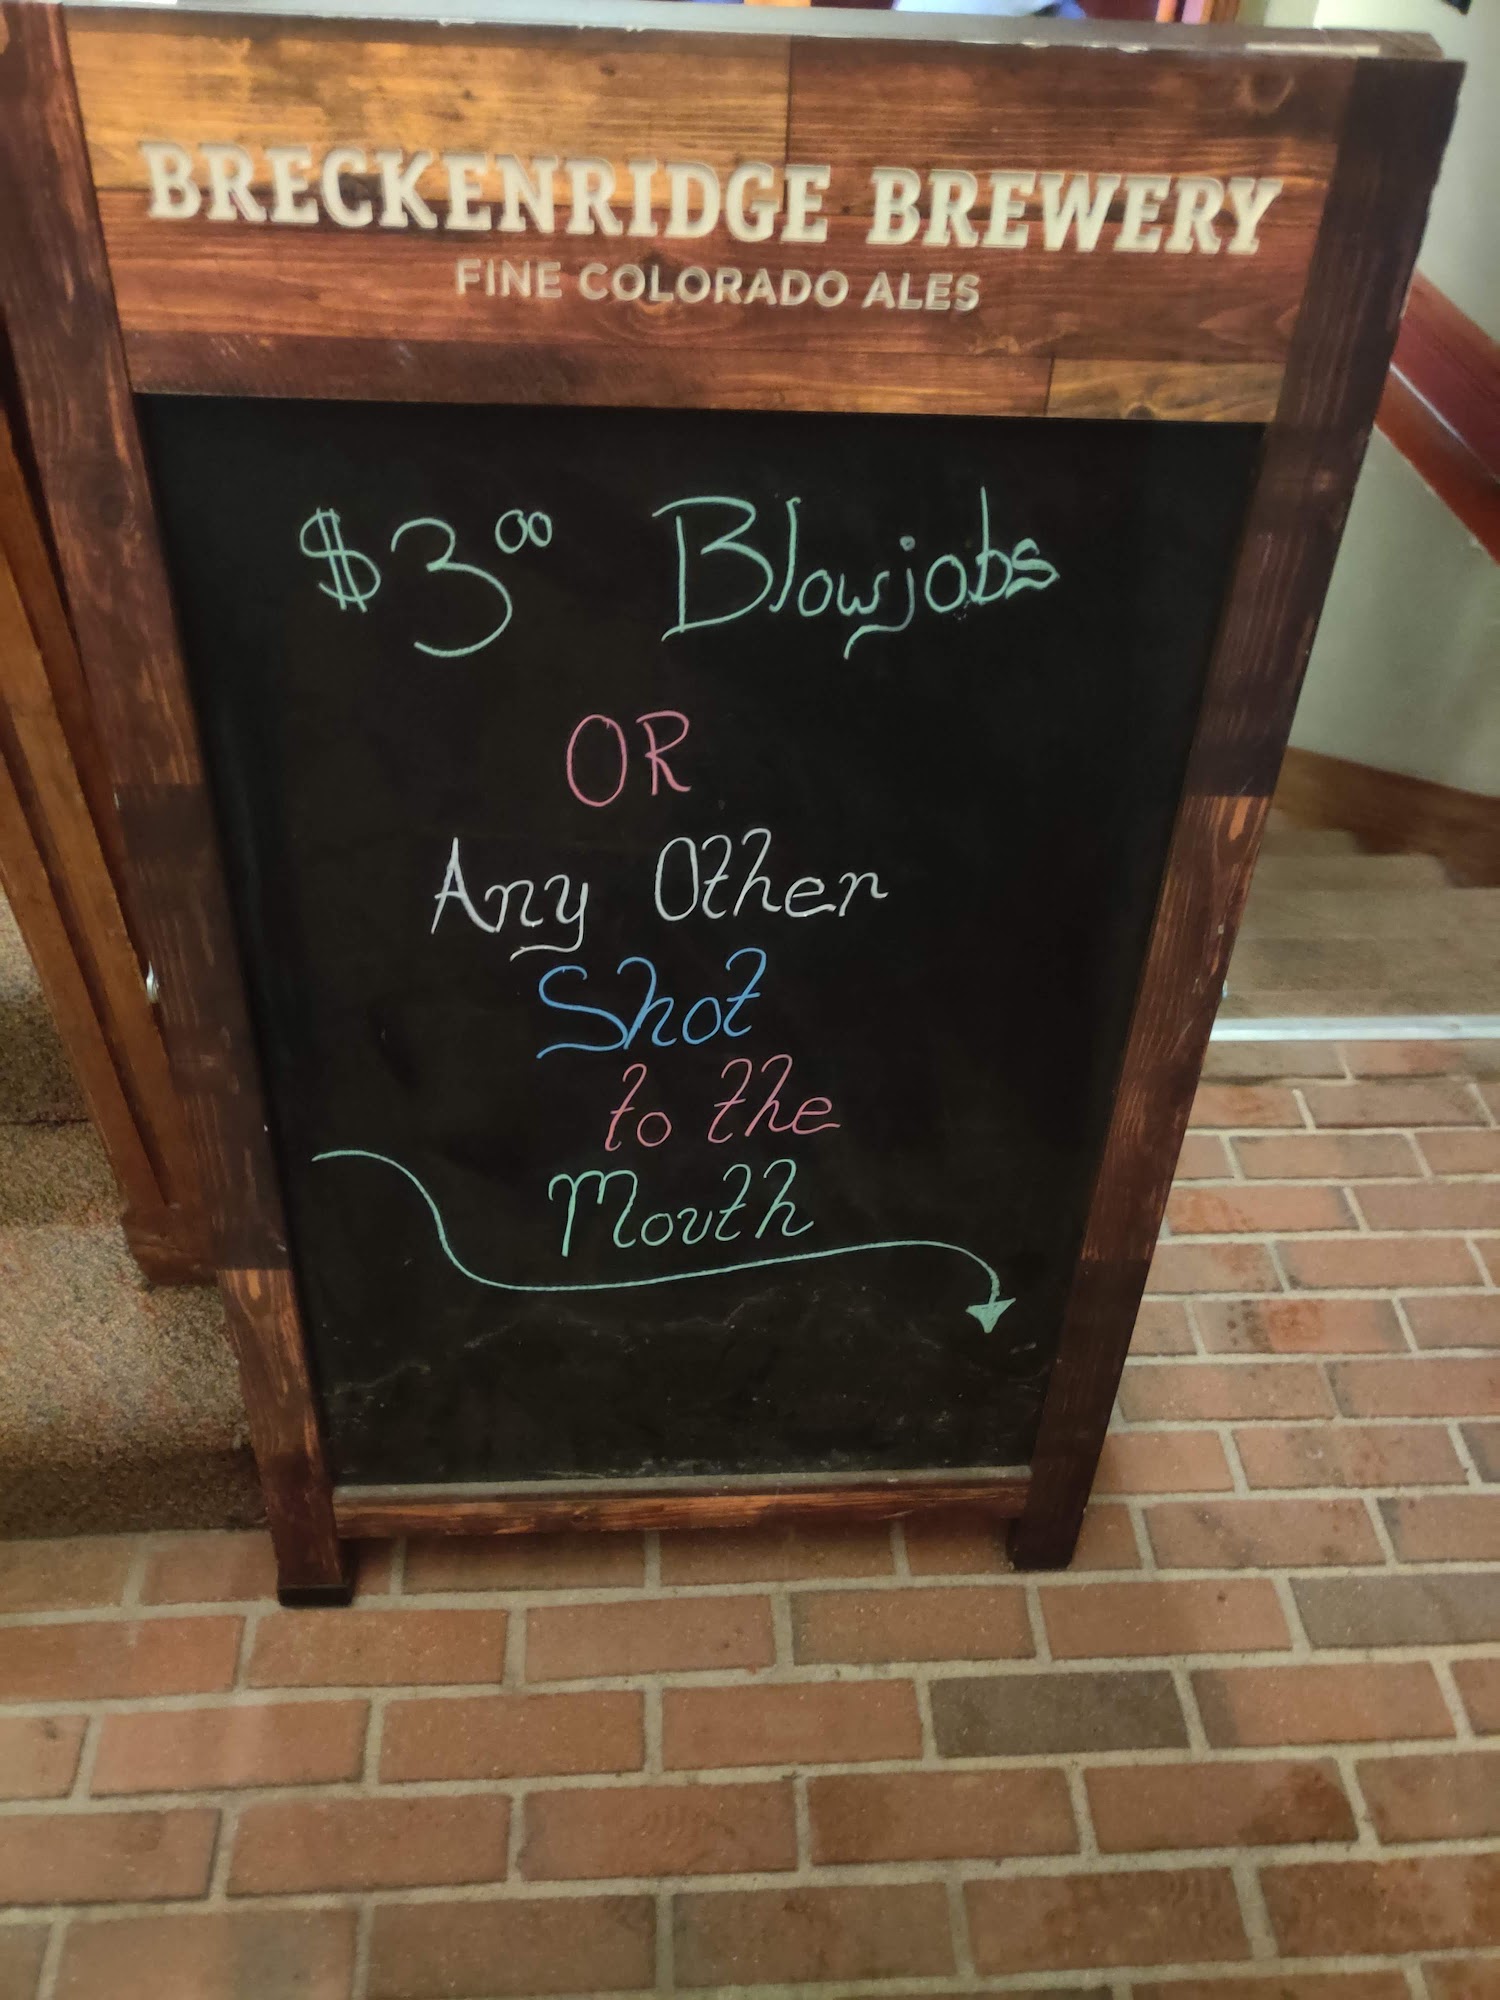 BRECKENRIDGE BREWERY
FINE COLORADO ALES
$3.00 Blowjobs
OR
Any Other
Shot
to the
Mouth